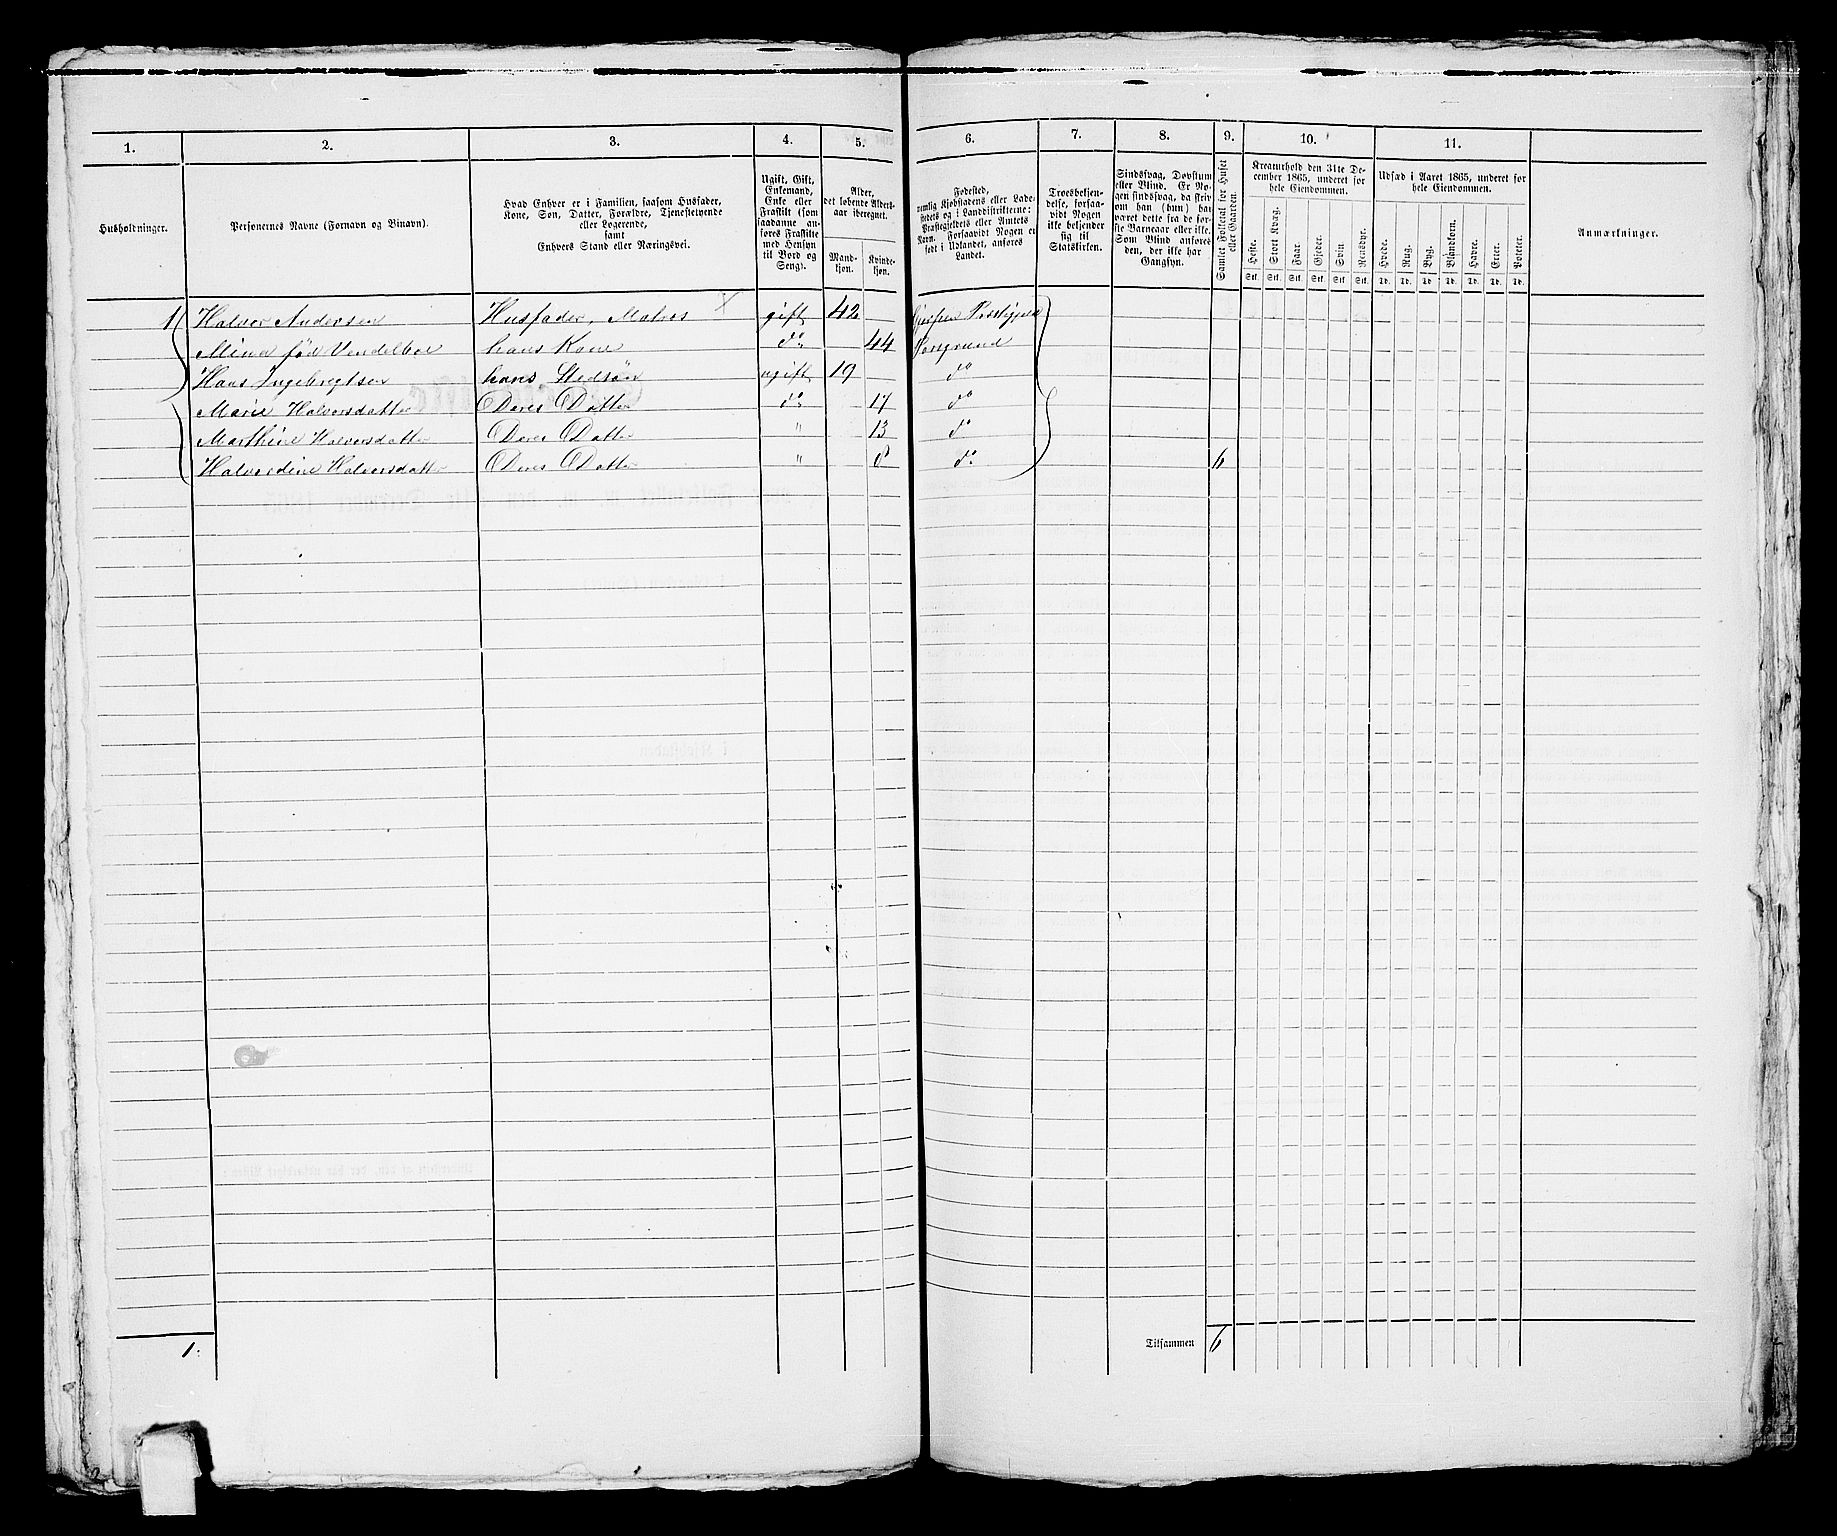 1. 2. 3. 4. 5. 6. 7. 8. 9. 10. 11.
Husholdninger.
Personernes Navne (Fornavn og Binavn).
Hvad Enhver er i Familien, saasom Husfader,
Kone, Søn, Datter, Forældre, Tjenestetyende
eller Logerende,
samt
Enhvers Stand eller Næringsvei.
Ugift, Gift,
Enkemand,
Enke eller
Fraskilt (som
saadanne an-
føres Fraskilte
med Hensyn
til Bord og
Seng).
Alder,
det løbende Alders-
aar iberegnet.
Mand-
kjøn.
Kvinde-
kjøn.
Fødested,
nemlig Kjøbstadens eller Lade-
stedets og i Landdistrikterne:
Præstegjeldets eller Amtets
Navn. Forsaavidt Nogen er
født i Udlandet, anføres
Landet.
Troesbekjen-
delse, forsaa-
vidt Nogen
ikke bekjender
sig til
Statskirken.
Sindssvag, Døvstum
eller Blind. Er No-
gen sindssvag, da skriv
om han (hun) har
været dette fra de før-
ste Barneaar eller ikke.
Som Blind anføres
den, der ikke har
Gangsyn.
Samlet Folketal for Huset
eller Gaarden.
Kreaturhold den 31te De-
cember 1865, underet for
hele Eiendommen.
Heste. Stort Kvæg. Faar. Gjeder. Svin. Rensdyr.
Stk. Stk. Stk. Stk. Stk. Stk.
Udsæd i Aaret 1865, underet for
hele Eiendommen.
Hvede. Rug. Byg. Blandkorn. Havre. Erter. Poteter.
Td. Td. Td. Td. Td. Td. Td.
Anmærkninger.
1 Halvor Andersen Husfader, Matros X gift 42 Gjerpen Præstegjeld
Mina fød Vendelboe hans Kone do 44 Porsgrund
Hans Ingebregtsen hans Stedsøn ugift 19 do
Marie Halvorsdatter Deres Datter do 17 do
Marthine Halvorsdatter Deres Datter " 13 do
Halvordine Halvorsdatter Deres Datter " 8 do 6
1. Tilsammen 6